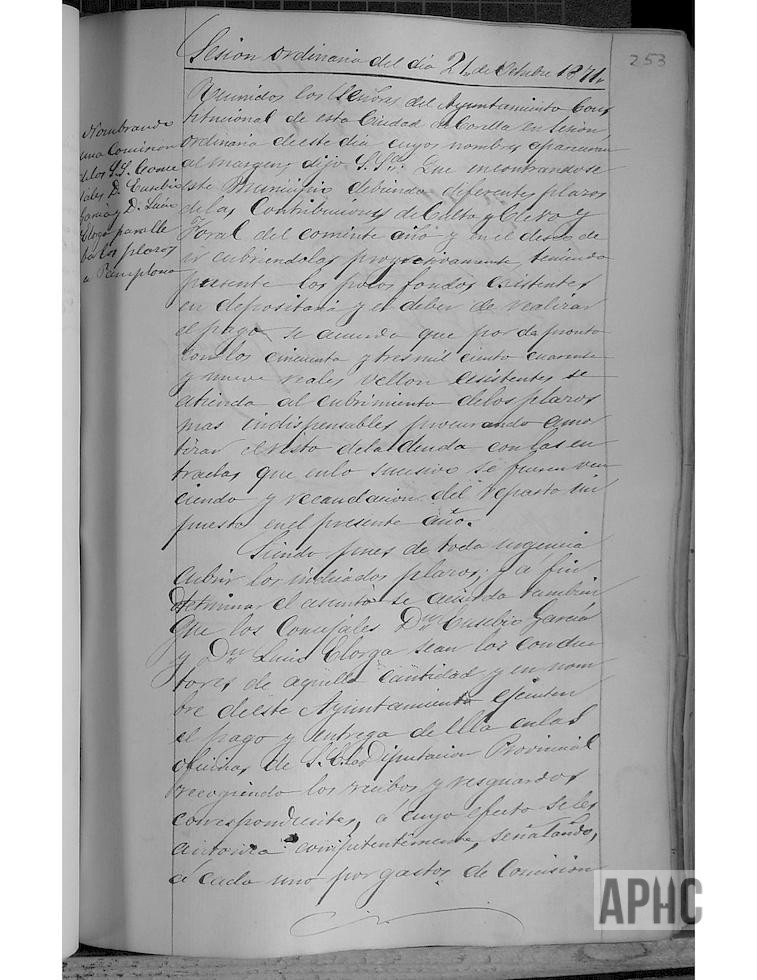 253
Sesion ordinaria del dia 24 de Octubre 1874
Nombrando
una Comision
de los S.S. Conce
jales D. Eusebio
Garcia y D. Luis
Clorga para lle
bar los plazos
a Pamplona
Reunidos los Señores del Ayuntamiento Cons
titucional de esta Ciudad de Corella en sesion
ordinaria de este dia cuyos nombres aparecen
al margen, dijo S. Sª: Que encontrandose
este Municipio debiendo diferentes plazos
de las Contribuciones de Culto y Clero y
Foral del corriente año y en el deseo de
ir cubriendolas progresivamente, teniendo
presente los pocos fondos existentes
en depositaria y el deber de realizar
el pago se acuerda que por de pronto
con los cincuenta y tres mil ciento cuarenta
y nueve reales vellon esistentes se
atienda al cubrimiento de los plazos
mas indispensables procurando amor
tizar el resto de la deuda con las en
tradas que en lo sucesivo se fueren ven
ciendo y recaudacion del reparto im
puesto en el presente año.
Siendo pues de toda urgencia
cubrir los indicados plazos, y a fin
determinar el asunto se acuerda tambien
Que los Concejales Dn Eusebio Garcia
y Dn Luis Clorga sean los conduc
tores de aquella cantidad y en nom
bre de este Ayuntamiento ejecuten
el pago y entrega de Ella en las
oficinas de S. E. la Diputacion Provincial
recogiendo los recibos y resguardos
correspondientes, a cuyo efecto se les
autoriza competentemente, señalando,
a cada uno por gastos de Comision
APHC